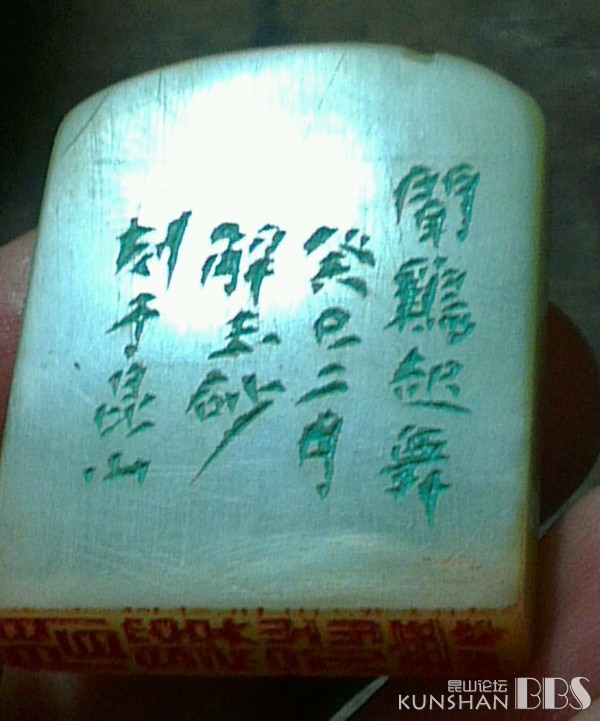 聞鷄起舞
癸巳二月
解玉砂
刻于昆山
昆山论坛
KUNSHAN BBS